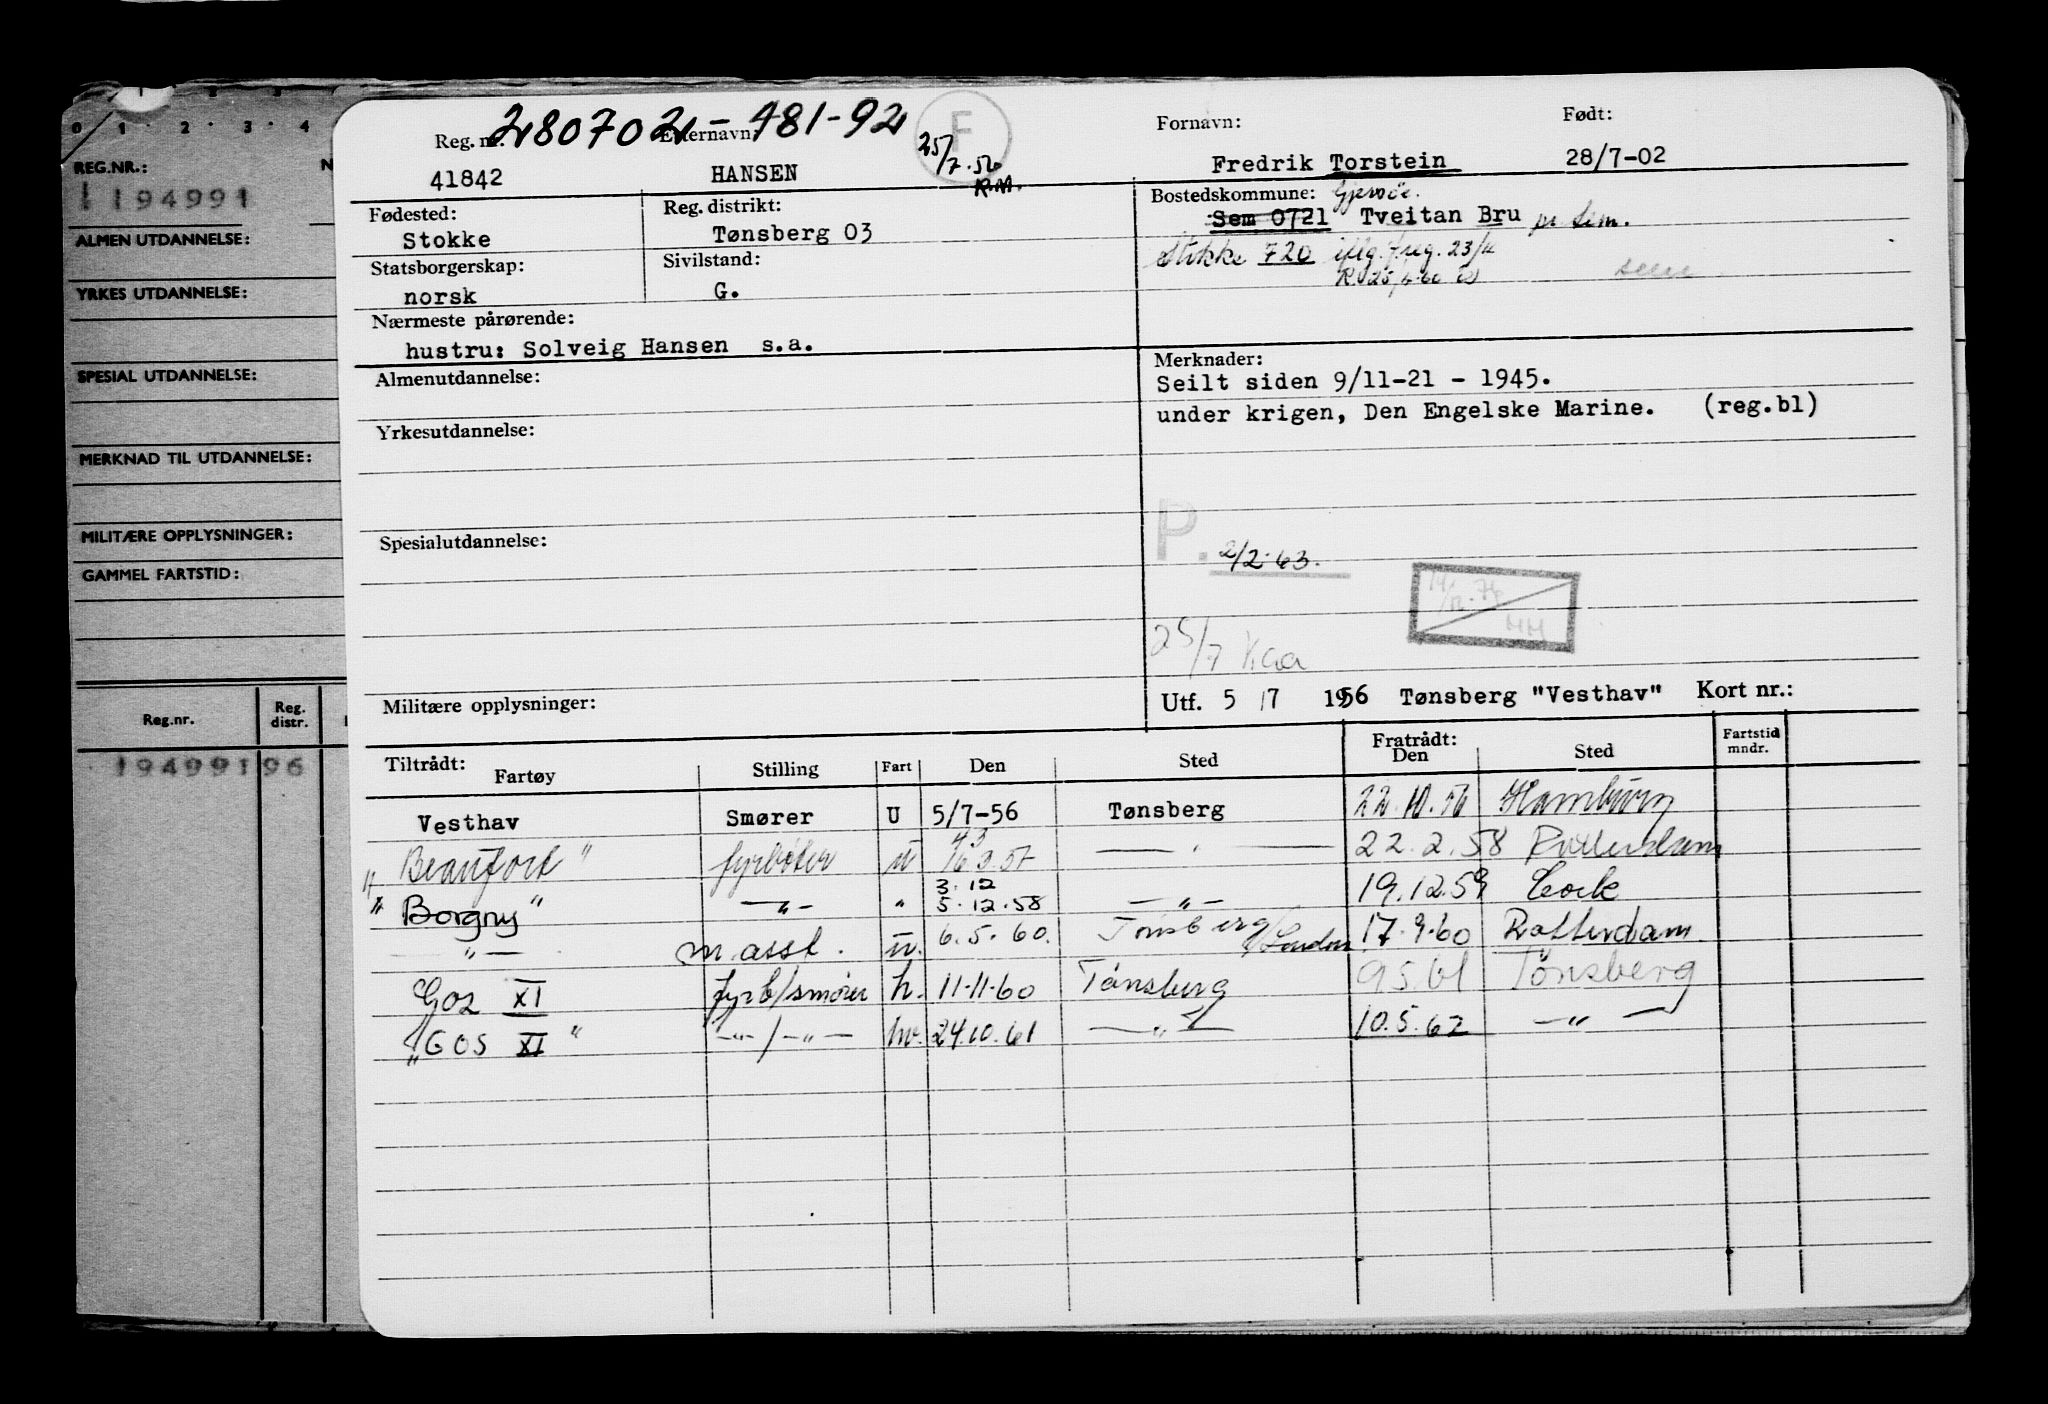 0 1 · 2 · 3 · 4
REG.NR.:
1194991
ALMEN UTDANNELSE:
YRKES UTDANNELSE:
SPESIAL UTDANNELSE:
MERKNAD TIL UTDANNELSE:
MILITÆRE OPPLYSNINGER:
GAMMEL FARTSTID:
Reg.nr. Reg. distr.
19499196
280702-481-92
F
25/7.56
R.M.
Reg. nr. Etternavn: Fornavn: Født:
41842 HANSEN Fredrik Torstein 28/7-02
Fødested: Reg. distrikt: Bostedskommune:
Stokke Tønsberg 03 Sem 0721 Tveitan Bru pr Sem.
Statsborgerskap: Sivilstand: Stokke 720 iflg. freg.
norsk G.
Nærmeste pårørende:
hustru: Solveig Hansen s.a.
Almenutdannelse: Merknader:
Seilt siden 9/11-21 - 1945.
under krigen, Den Engelske Marine. (reg.bl)
Yrkesutdannelse:
Spesialutdannelse:
P. 2/2.63.
25/7
Militære opplysninger: Utf. 5 /7 1956 Tønsberg "Vesthav" Kort nr.:
Tiltrådt: Fratrådt:
Fartøy Stilling Fart Den Sted Den Sted Fartstid mndr.
Vesthav Smører U 5/7-56 Tønsberg 22.10.56 Hamburg
"Beaufort" fyrbøter u — " — 22.2.58 Rotterdam
"Borgny" — " — " 3.12 5.12.58 — " — 19.12.59 Cork
— " — m.asst. u. 6.5.60. Tønsberg/London 17.9.60 Rotterdam
Gos XI fyrb/smører h. 11.11.60 Tønsberg 9.5.61 Tønsberg
"GOS XI" — " — / — " — hv. 24.10.61 — " — 10.5.62 — " —